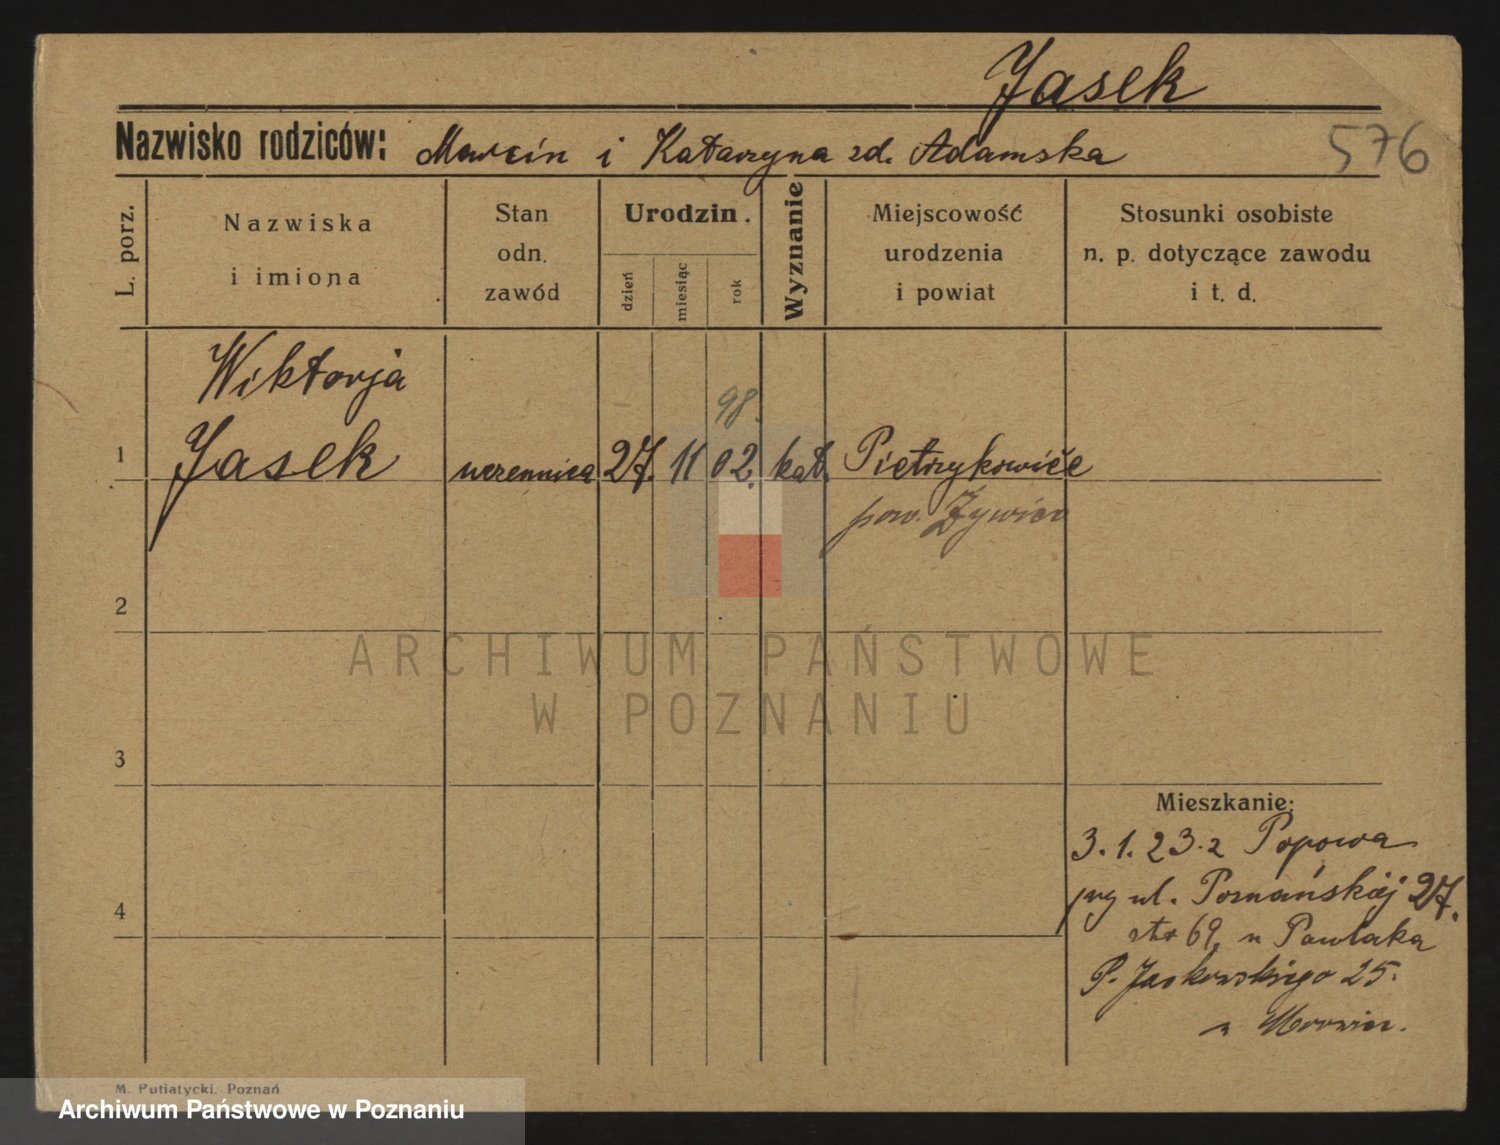 Jasek
Nazwisko rodziców: Marcin i Katarzyna zd. Adamska
576
L. porz.
Nazwiska
i imiona
Stan
odn.
zawód
Urodzin.
dzień
miesiąc
rok
Wyznanie
Miejscowość
urodzenia
i powiat
Stosunki osobiste
n. p. dotyczące zawodu
i t. d.
Wiktorja
98.
1 Jasek uczennica 27. 11 02. kat. Pietrzykowice
pow. Żywiec
2
ARCHIWUM PAŃSTWOWE
W POZNANIU
3
Mieszkanie:
3.1.23. z Popowa
przy ul. Poznańskiej 27.
str 69, u Pawlaka
P. Jackowskiego 25.
u
4
M. Putiatycki. Poznań
Archiwum Państwowe w Poznaniu